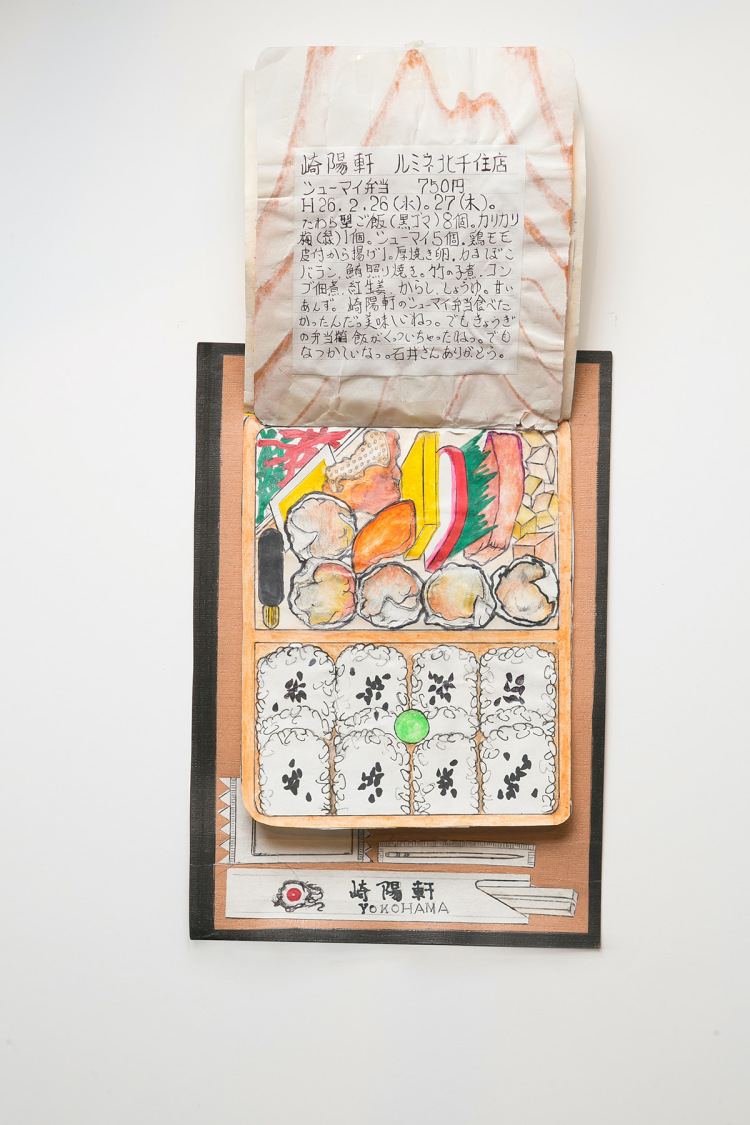 崎陽軒 ルミネ北千住店
シューマイ弁当 750円
H26.2.26(水)。27(木)。
たわら型ご飯(黒ゴマ)8個。カリカリ
梅(緑)1個。シューマイ5個。鶏モモ
皮付から揚げ1。厚焼き卵。かまぼこ
バラン。鮪照り焼き。竹の子煮。コン
ブ佃煮。紅生姜。からし。しょうゆ。甘い
あんず。崎陽軒のシューマイ弁当食べた
かったんだっ。美味しいねっ。でもきょうぎ
の弁当箱飯がくっついちゃったねっ。でも
なつかしいなっ。石井さんありがとう。
崎陽軒
YOKOHAMA